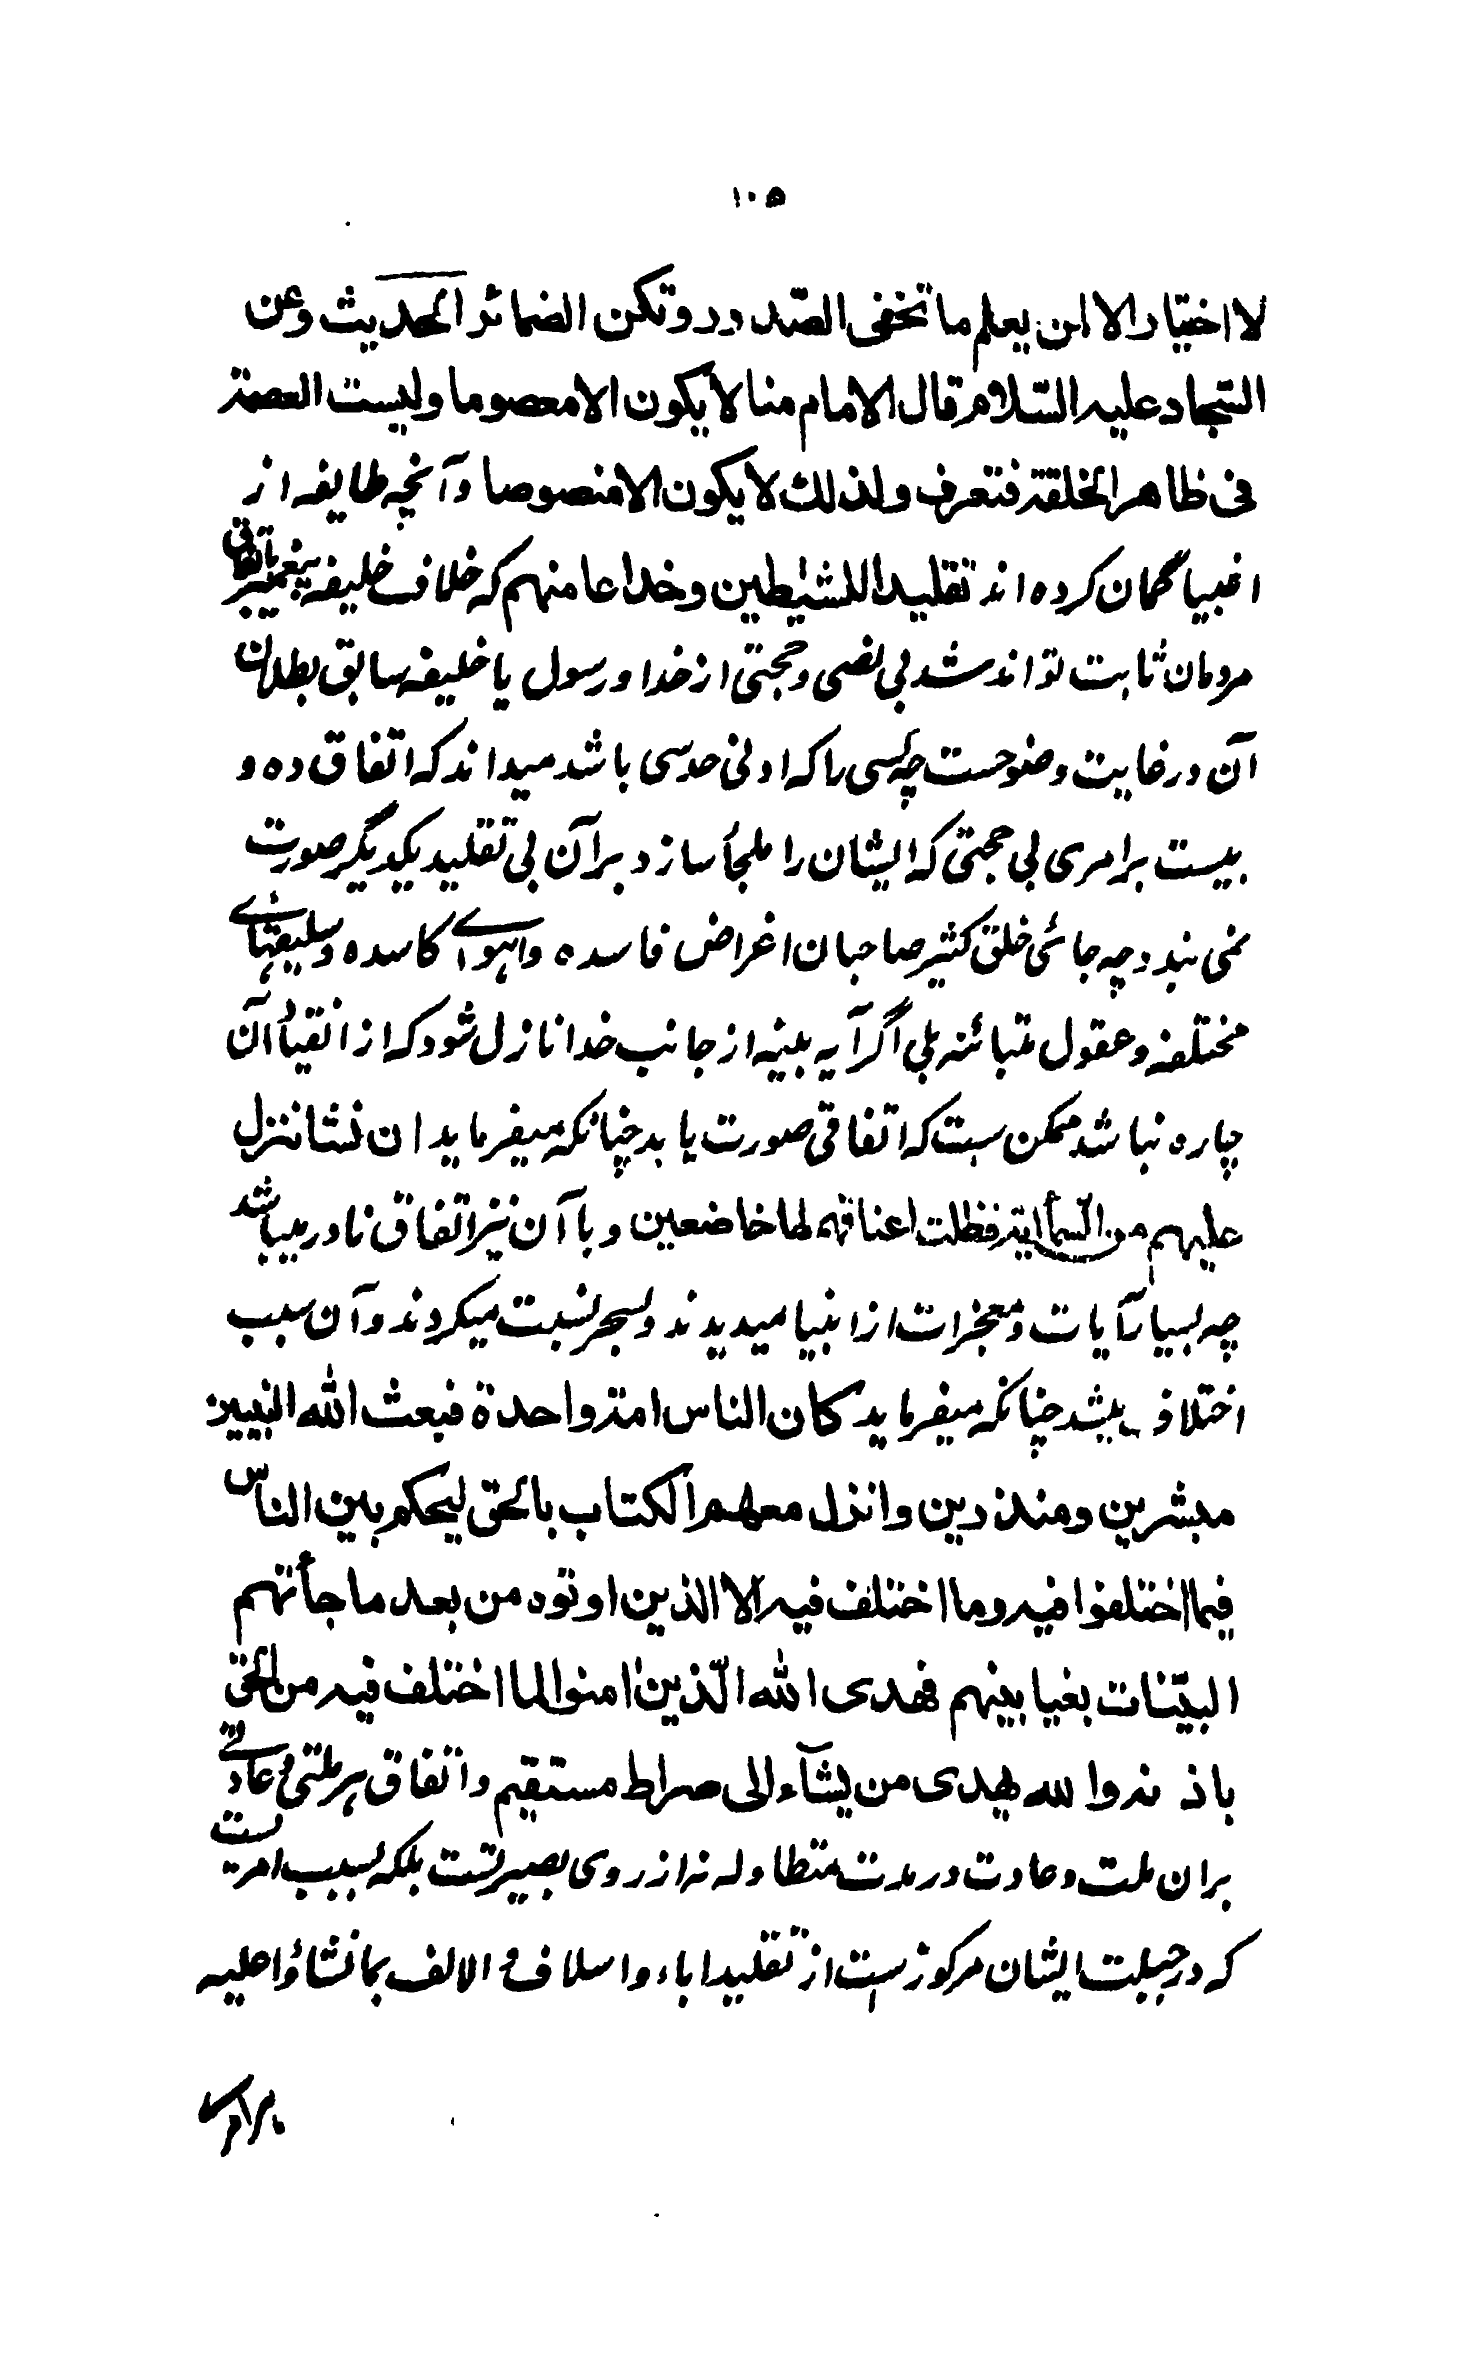 ١٠٥
لا اختیار الا لمن یعلم ما تخفی الصّدور و تکن الضمائر الحدیث و عن
السّجاد علیه السّلام قال الامام منا لا یکون الا معصوما و لیست العصمة
فی ظاهر الخلقة فتعرف و لذلك لا یکون الا منصوصا و آنچه طایفه از
اغبیا گمان کرده اند تقلیدا للشیٰطین و خداعا منهم که خلافت خلیفه پیغمبر باتفاق
مردمان ثابت تواند شد بی نصی و حجتی از خدا و رسول یا خلیفه سابق بطلان
آن در غایت وضوحست چه کسی را که ادنی حدسی باشد میداند که اتفاق ده و
بیست بر امری بی حجتی که ایشان را ملجأ سازد بر آن بی تقلید یکدیگر صورت
نمی بندد چه جائی خلق کثیر صاحبان اغراض فاسده و اهوای کاسده و سلیقهای
مختلفه و عقول متبائنه بلی اگر آیه بینه از جانب خدا نازل شود که از انقیاد آن
چاره نباشد ممکن ست که اتفاقی صورت یابد چنانکه میفرماید ان نشا ننزل
علیهم من السّمآ ایة فظلت اعناقهم لها خاضعین و با آن نیز اتفاق نادر میباشد
چه بسیار آیات و معجزات از انبیا میدیدند و بسحر نسبت میکردند و آن سبب
اختلاف میشد چنانکه میفرماید کان الناس امة واحدة فبعث الله النبیین
مبشرین و منذرین و انزل معهم الکتاب بالحق لیحکم بین الناس
فیما اختلفوا فیه و ما اختلف فیه الا الذین اوتوه من بعد ما جأتهم
البیّنات بغیا بینهم فهدی الله الّذین اٰمنوا لما اختلف فیه من الحق
باذنه و الله یهدی من یشآء الی صراط مستقیم و اتفاق هر ملتی و عادتی
بران ملت و عادت در مدت متطاوله نه از روی بصیرتست بلکه بسبب امریست
که در جبلت ایشان مرکوز ست از تقلید اباء و اسلاف و الالف بما نشاؤا علیه